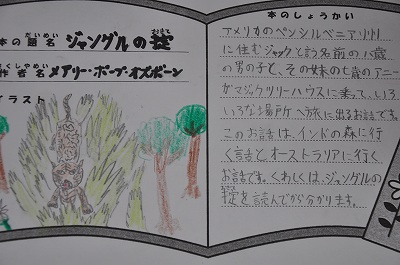 本の題名 ジャングルの掟
だいめい
おきて
作者名 メアリー・ポープ・オズボーン
さくしゃめい
イラスト
本のしょうかい
アメリカのペンシルベニア州
に住むジャックと言う名前の八歳
の男の子と、その妹の七歳のアニー
がマジックツリーハウスに乗って、いろ
いろな場所へ旅に出るお話です。
このお話は、インドの森に行
く話と、オーストラリアに行く
お話です。くわしくは、ジャングルの
掟を読んでから分かります。